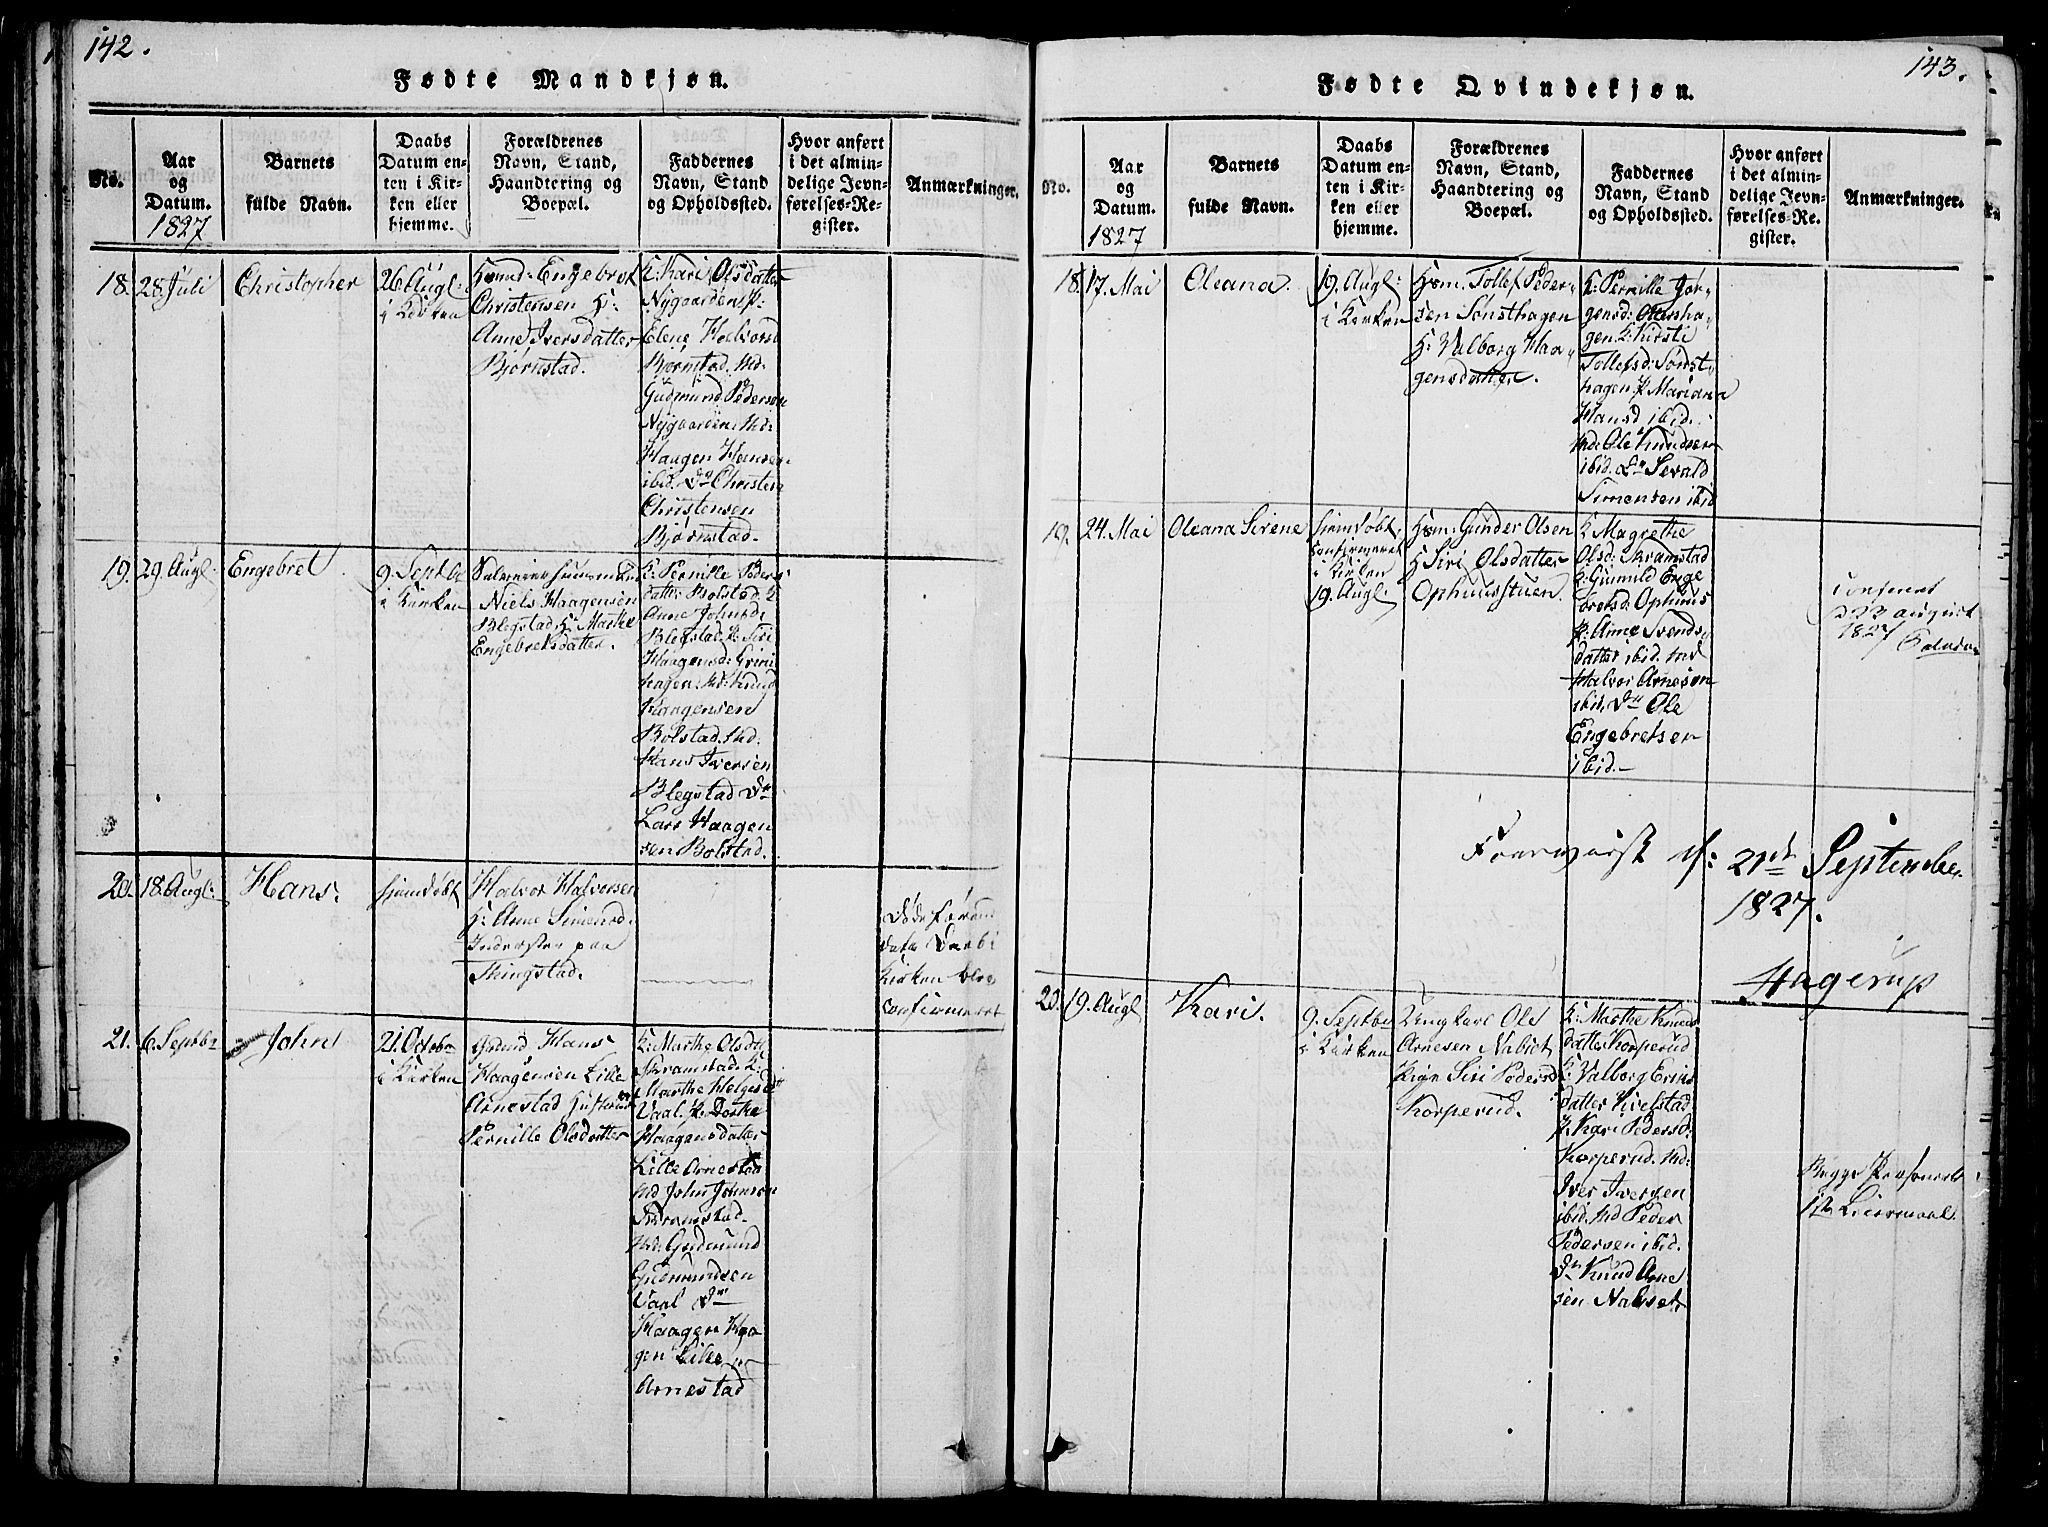 142.
Fødte Mandkjøn.
No.
Aar
og
Datum.
1827
Barnets
fulde Navn.
Daabs
Datum en-
ten i Kir-
ken eller
hjemme.
Forældrenes
Navn, Stand,
Haandtering og
Boepæl.
Faddernes
Navn, Stand
og Opholdssted.
Hvor anført
i det almin-
delige Jevn-
førelses-Re-
gister.
Anmærkninger.
18.
28. Juli
Christopher
26 Augl:
i Kirken
Engebret
Christensen K:
Anne Iversdatter
Bjørnstad.
K: Kari Olsdatter
Nygaarden P:
Elene Halvorsd
Bjørnstad. Md:
Gudmund Pedersen
Nygaarden. Md:
Haagen Hansen
ibid. Dn Christen
Christensen
Bjørnstad.
19.
29. Augl:
Engebret
9. Septbr
i Kirken
Niels Haagensen
Blegstad K: Marthe
Engebretsdatter.
K: Pernille Peders
datter Bolstad. K
Anne Johnsd:
Blegstad. P: Siri
Haagensd: Grimi
hagen. Md: Knud
Haagensen
Bolstad. Md:
Hans Iversen
Blegstad Dn
Lars Haagen
sen Bolstad.
20.
18. Augl:
Hans.
hjemdøbt
Halvor Halvorsen
K: Anne Simensd.
Inderster paa
Thingstad.
Døde førend
Daaben i
Kirken blev
confirmeret
21.
6. Septbr
John
21. Octobr
i Kirken
Hans
Haagensen Lille
Arnestad
Pernille Olsdatter
K: Marthe Olsdtr
Skramstad. K:
Marthe Helgesdtr
Vaal. P: Dorthe
Haagensdatter
Lille Arnestad
Md John Johnsen
Skramstad.
Md: Gudmund
Gudmundsen
Vaal Dn
Haagen Haa
gen Lille
Arnestad
143.
Fødte Qvindekjøn.
No.
Aar
og
Datum.
1827
Barnets
fulde Navn.
Daabs
Datum en-
ten i Kir-
ken eller
hjemme.
Forældrenes
Navn, Stand,
Haandtering og
Boepæl.
Faddernes
Navn, Stand
og Opholdssted.
Hvor anført
i det almin-
delige Jevn-
førelses-Re-
gister.
Anmærkninger.
18.
17. Mai
Oleana.
19. Augl:
i Kirken
Hsm. Tollef Peder-
sen Sønsthagen
K: Valborg Haa-
gensdatter.
K: Pernille Jør-
gensd: Olersha-
gen. K: Kirsti
Tollefsd: Sønst-
hagen. P. Mariana
Hansd ibid.
Md: Ole Knudsen
ibid. Dn Sevald
Simensen ibid
19.
24. Mai
Oleana Sirene
hjemdøbt,
confirmeret
i Kirken
19. Augl:
Hsm: Gunder Olsen
K Siri Olsdatter
Ophuusstuen.
K: Magrethe
Olsd: Skramstad
K: Gunnild Enge
bretsd: Ophuus
P: Anne Svends-
datter ibid. Md
Halvor Arnesen
ibid. Dn Ole
Engebretsen
ibid.
confereret
d 22 august
1827
Foreviist d: 21de September
1827.
Hagerup
20.
19. Augl
Kari.
9. Septbr
i Kirken
Ungkarl Ole
Arnesen Nabset
Pige Siri Pedersd
Korperud.
K: Marthe Knuds
datter Korperud
K: Valborg Eriks
datter Kivelstad
P. Kari Pedersd:
Korperud. Md:
Iver Iversen
ibid. Md Peder
Pedersen ibid.
Dn Knud Arne
sen Nabset
Begges
1ste Leiermaal.